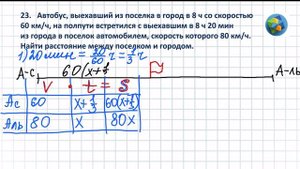 23. Автобус, выехавший из поселка в город в 8 ч со скоростью
60 км/ч, на полпути встретился с выехавшим в 8 ч 20 мин
из города в поселок автомобилем, скорость которого 80 км/ч.
Найти расстояние между поселком и городом.
1) 20 мин = 20/60 ч = 1/3 ч
А-С 60(x+1/3 А-ль
V · t = S
Ас 60 x+1/3 60(x+1/3)
Аль 80 x 80x